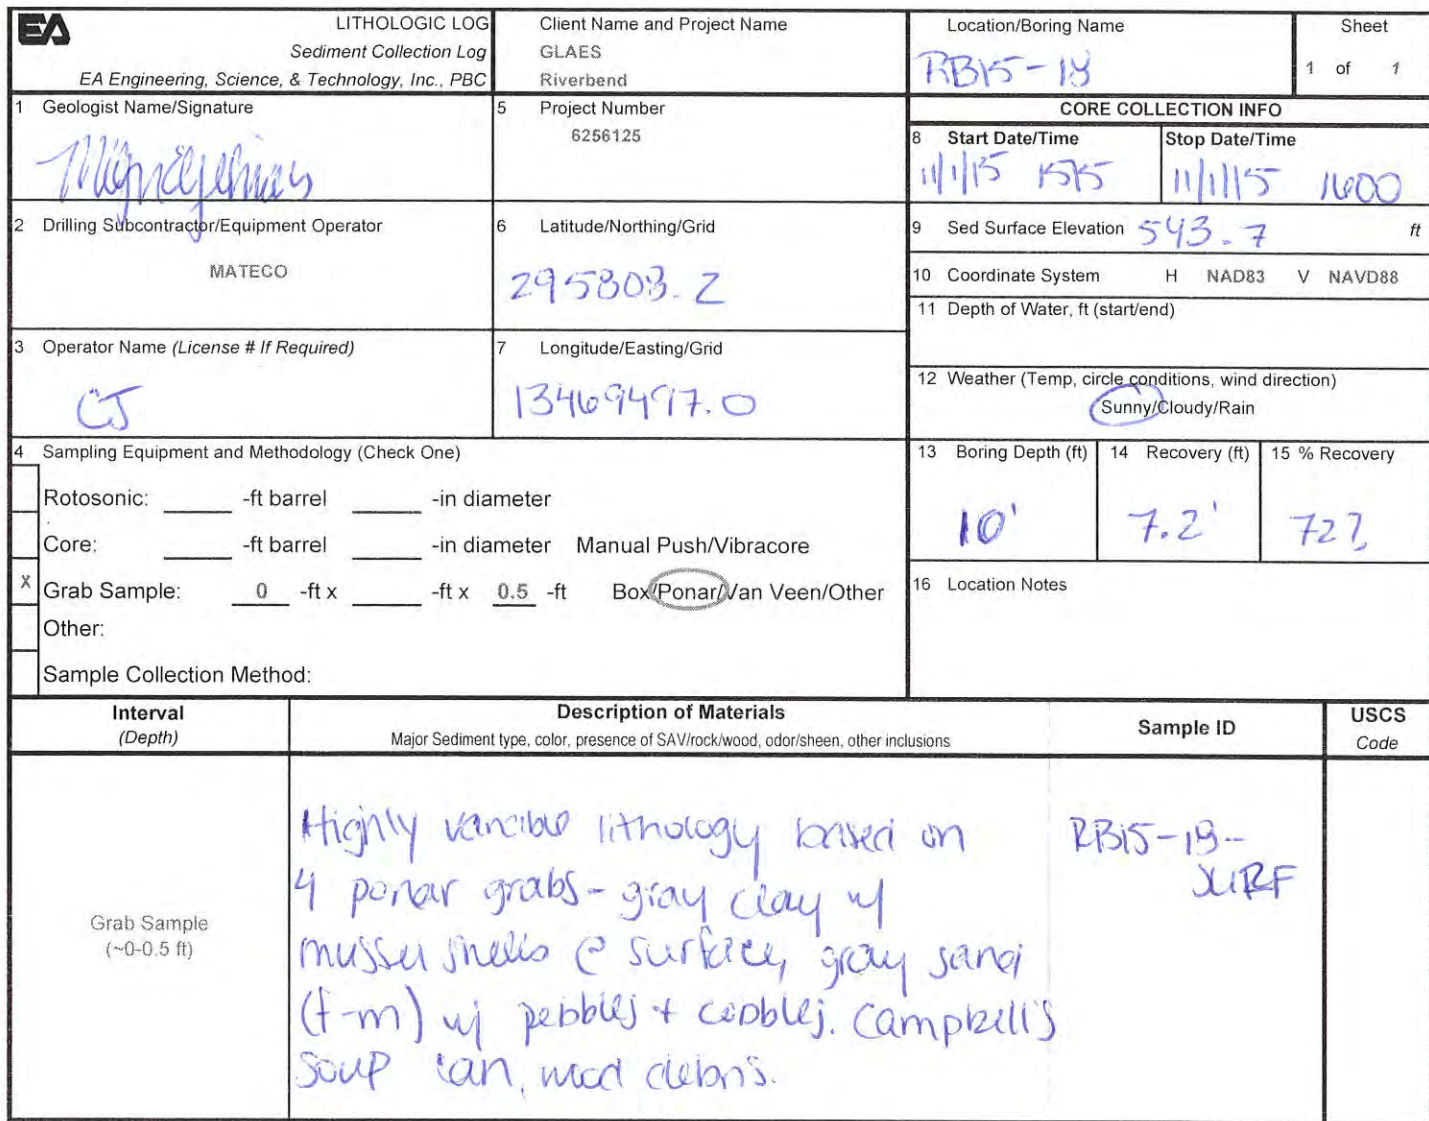 EA
LITHOLOGIC LOG
Sediment Collection Log
EA Engineering, Science, & Technology, Inc., PBC
Client Name and Project Name
GLAES
Riverbend
Location/Boring Name
RB15-18
Sheet
1 of 1
1 Geologist Name/Signature
5 Project Number
6256125
CORE COLLECTION INFO
8 Start Date/Time
11/1/15 1515
Stop Date/Time
11/1/15 1600
2 Drilling Subcontractor/Equipment Operator
MATECO
6 Latitude/Northing/Grid
295803.2
9 Sed Surface Elevation 543.7 ft
10 Coordinate System H NAD83 V NAVD88
11 Depth of Water, ft (start/end)
3 Operator Name (License # If Required)
CJ
7 Longitude/Easting/Grid
13469497.0
12 Weather (Temp, circle conditions, wind direction)
Sunny/Cloudy/Rain
4 Sampling Equipment and Methodology (Check One)
Rotosonic: ____ -ft barrel ____ -in diameter
Core: ____ -ft barrel ____ -in diameter Manual Push/Vibracore
X Grab Sample: 0 -ft x ____ -ft x 0.5 -ft Box/Ponar/Van Veen/Other
Other:
Sample Collection Method:
13 Boring Depth (ft)
10'
14 Recovery (ft)
7.2'
15 % Recovery
72%
16 Location Notes
Interval
(Depth)
Description of Materials
Major Sediment type, color, presence of SAV/rock/wood, odor/sheen, other inclusions
Sample ID
USCS
Code
Grab Sample
(~0-0.5 ft)
Highly variable lithology based on
4 ponar grabs - gray clay w/
mussel shells @ surface, gray sand
(f-m) w/ pebbles + cobbles. Campbell's
soup can, wood debris.
RB15-18-
SURF